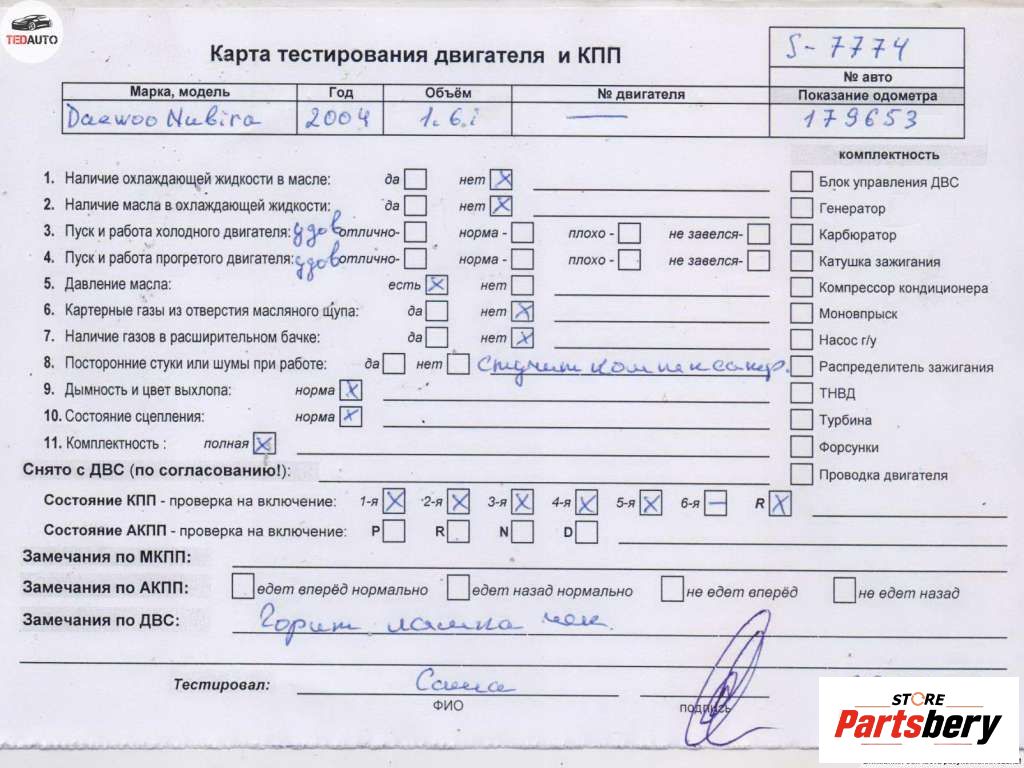 TEDAUTO
Карта тестирования двигателя и КПП
S-7774
№ авто
Марка, модель Год Объём № двигателя Показание одометра
Daewoo Nubira 2004 1.6.i — 179653
комплектность
1. Наличие охлаждающей жидкости в масле: да нет X Блок управления ДВС
2. Наличие масла в охлаждающей жидкости: да нет X Генератор
3. Пуск и работа холодного двигателя: удов отлично- норма - плохо - не завелся- Карбюратор
4. Пуск и работа прогретого двигателя: удов отлично- норма - плохо - не завелся- Катушка зажигания
5. Давление масла: есть X нет Компрессор кондиционера
6. Картерные газы из отверстия масляного щупа: да нет X Моновпрыск
7. Наличие газов в расширительном бачке: да нет X Насос г/у
8. Посторонние стуки или шумы при работе: да нет стучит компенсатор. Распределитель зажигания
9. Дымность и цвет выхлопа: норма X ТНВД
10. Состояние сцепления: норма X Турбина
11. Комплектность : полная X Форсунки
Снято с ДВС (по согласованию!): Проводка двигателя
Состояние КПП - проверка на включение: 1-я X 2-я X 3-я X 4-я X 5-я X 6-я — R X
Состояние АКПП - проверка на включение: P R N D
Замечания по МКПП:
Замечания по АКПП: едет вперёд нормально едет назад нормально не едет вперёд не едет назад
Замечания по ДВС: Горит лампа чек.
Тестировал: Саша
ФИО подпись
STORE
Partsbery